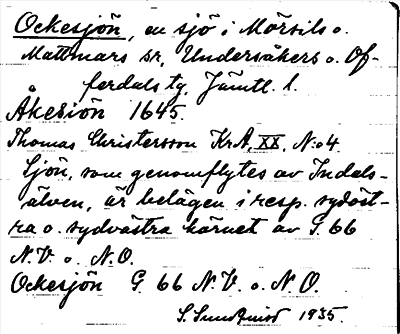 Ockesjön, en sjö i Mörsils o.
Mattmars sr, Undersåkers o. Of-
ferdals tg, Jämtl. l.
Åkesiön 1645.
Thomas Christersson KrA, XX, N:o 4.
Sjön, som genomflytes av Indals-
älven, är belägen i resp. sydöst-
ra o. sydvästra hörnet av G. 66
N.V. o. N.O.
Ockesjön G. 66 N.V. o. N.O.
S. Sundquist 1935.